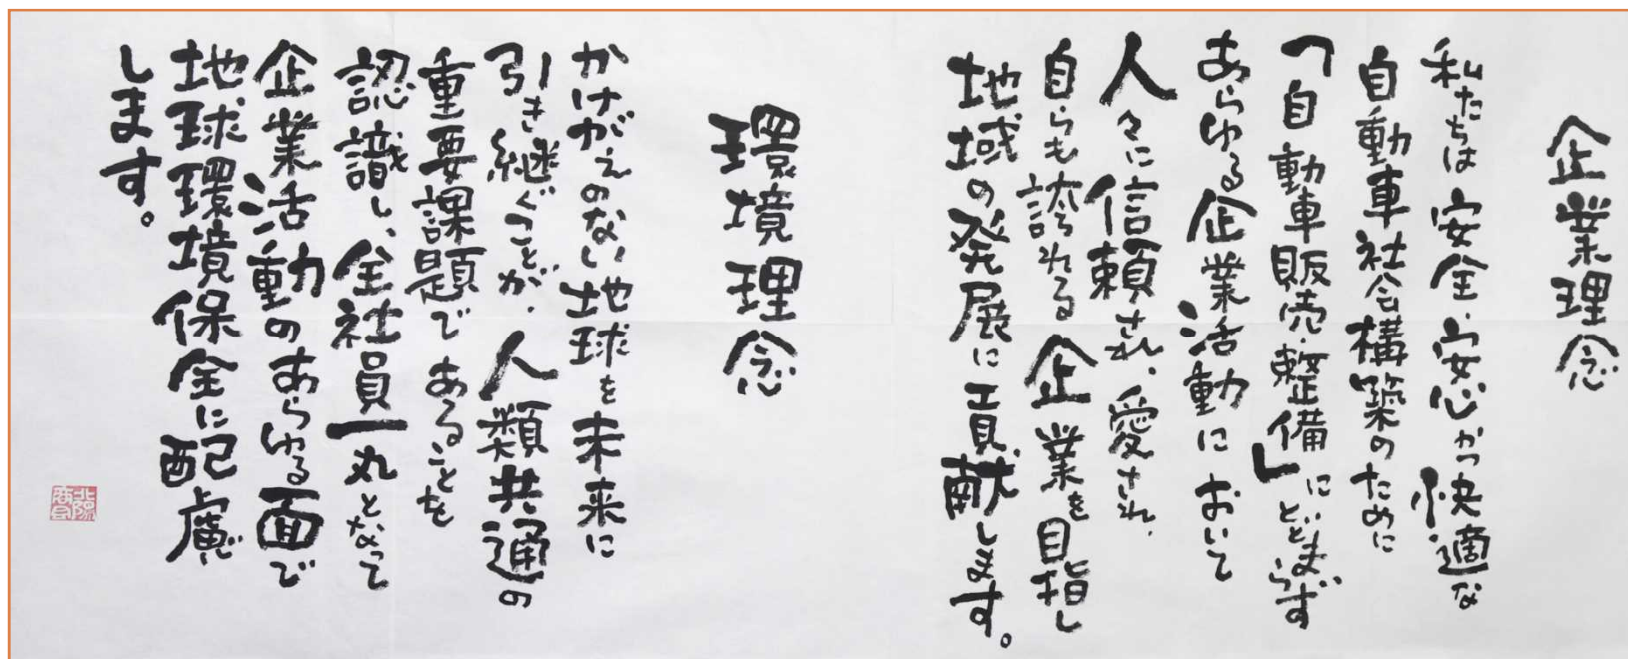 企業理念
私たちは安全・安心かつ快適な
自動車社会構築のために
「自動車販売・整備」にとどまらず
あらゆる企業活動において
人々に信頼され、愛され、
自らも誇れる企業を目指し
地域の発展に貢献します。
環境理念
かけがえのない地球を未来に
引き継ぐことが、人類共通の
重要課題であることを
認識し、全社員一丸となって
企業活動のあらゆる面で
地球環境保全に配慮
します。